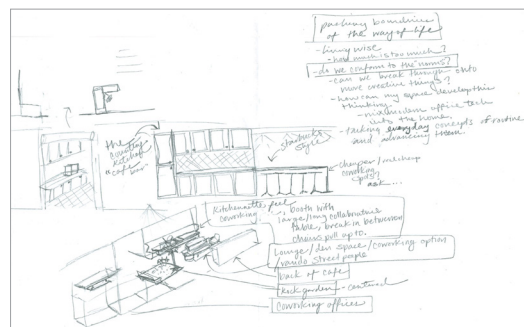 pushing boundries
of the way of life
- living wise
- how much is too much?
- do we conform to the norms?
- can we break through onto
more creative things?
- how can my space develop this
thinking.
office tech
into the home,
- taking everyday concepts of routine
and advancing them.
the
kitchen
"cafe
bar"
starbucks
style
cheaper/
coworking
spots?
ask...
kitchennette feel
coworking
, booth with
large/long collaborative
table, break in between
chairs pull up to.
Lounge/den space/coworking option
street people
back of cafe
rock garden -
coworking offices